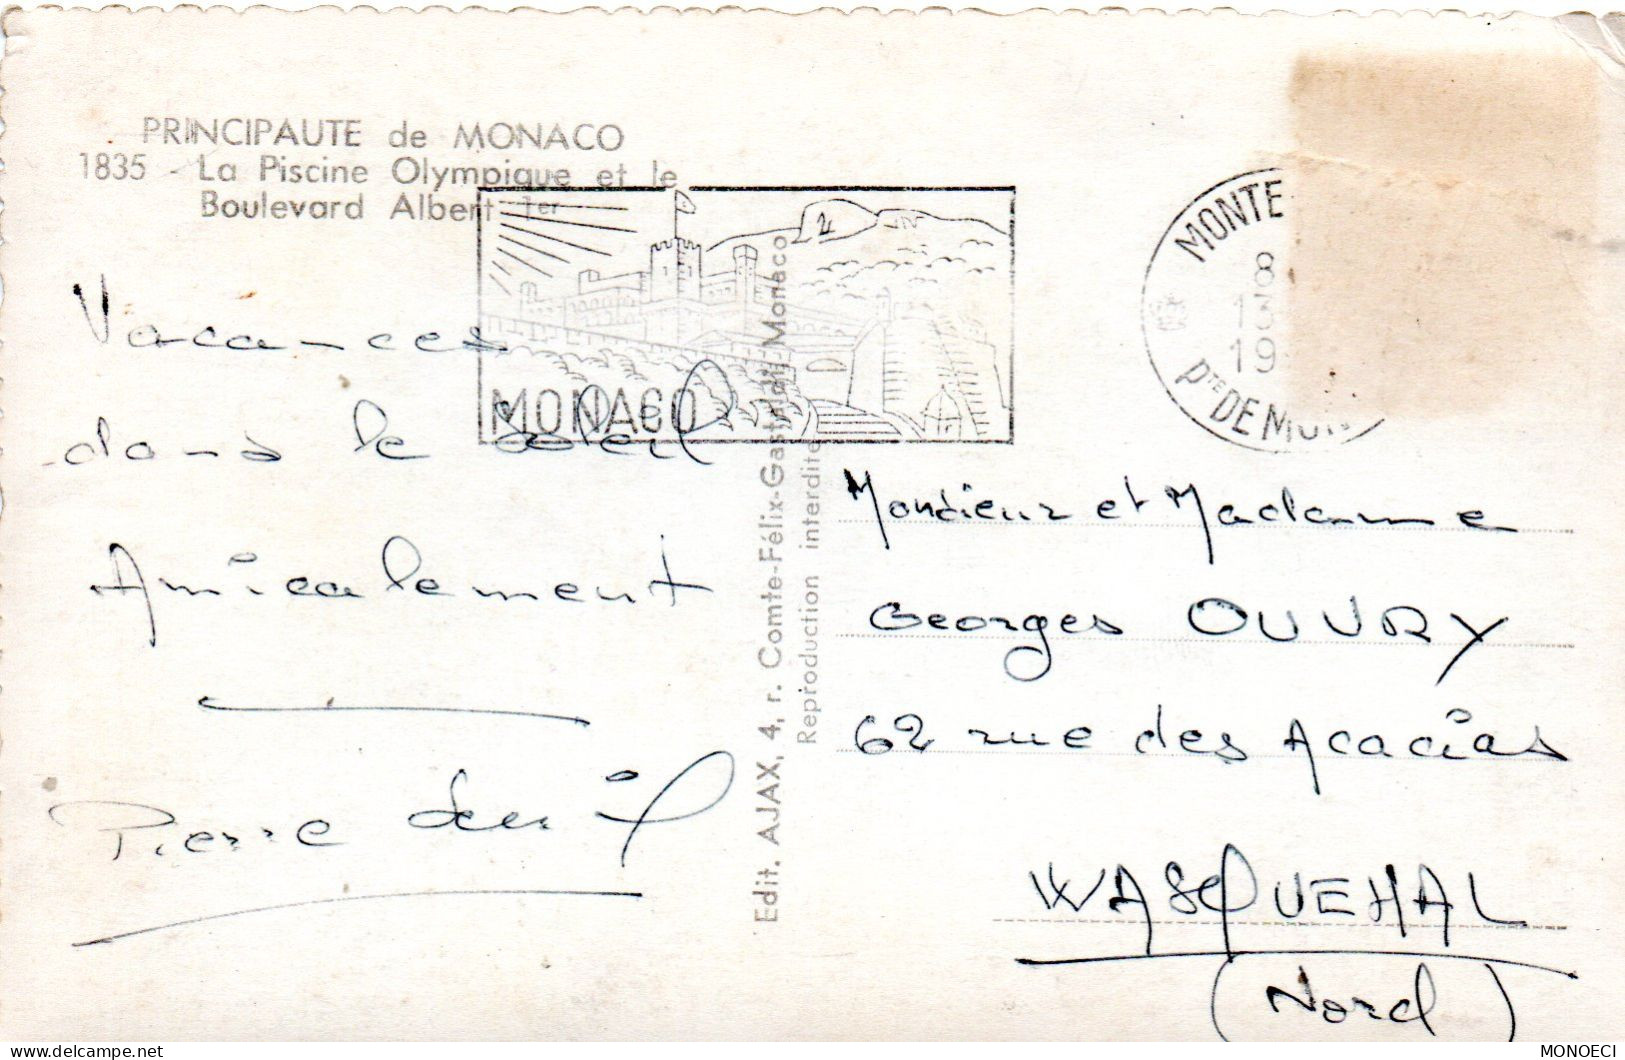 PRINCIPAUTE de MONACO
1835 - La Piscine Olympique et le
Boulevard Albert 1er
Vacances
dans le soleil
Amicalement
Pierre
MONACO
MONTE
8
13
19
PTE DE MON
Edit. AJAX, 4, r. Comte-Félix-Gastaldi, Monaco
Reproduction interdite
Monsieur et Madame
Georges OUVRY
62 rue des Acacias
WASQUEHAL
(Nord)
delcampe.net
MONOECI